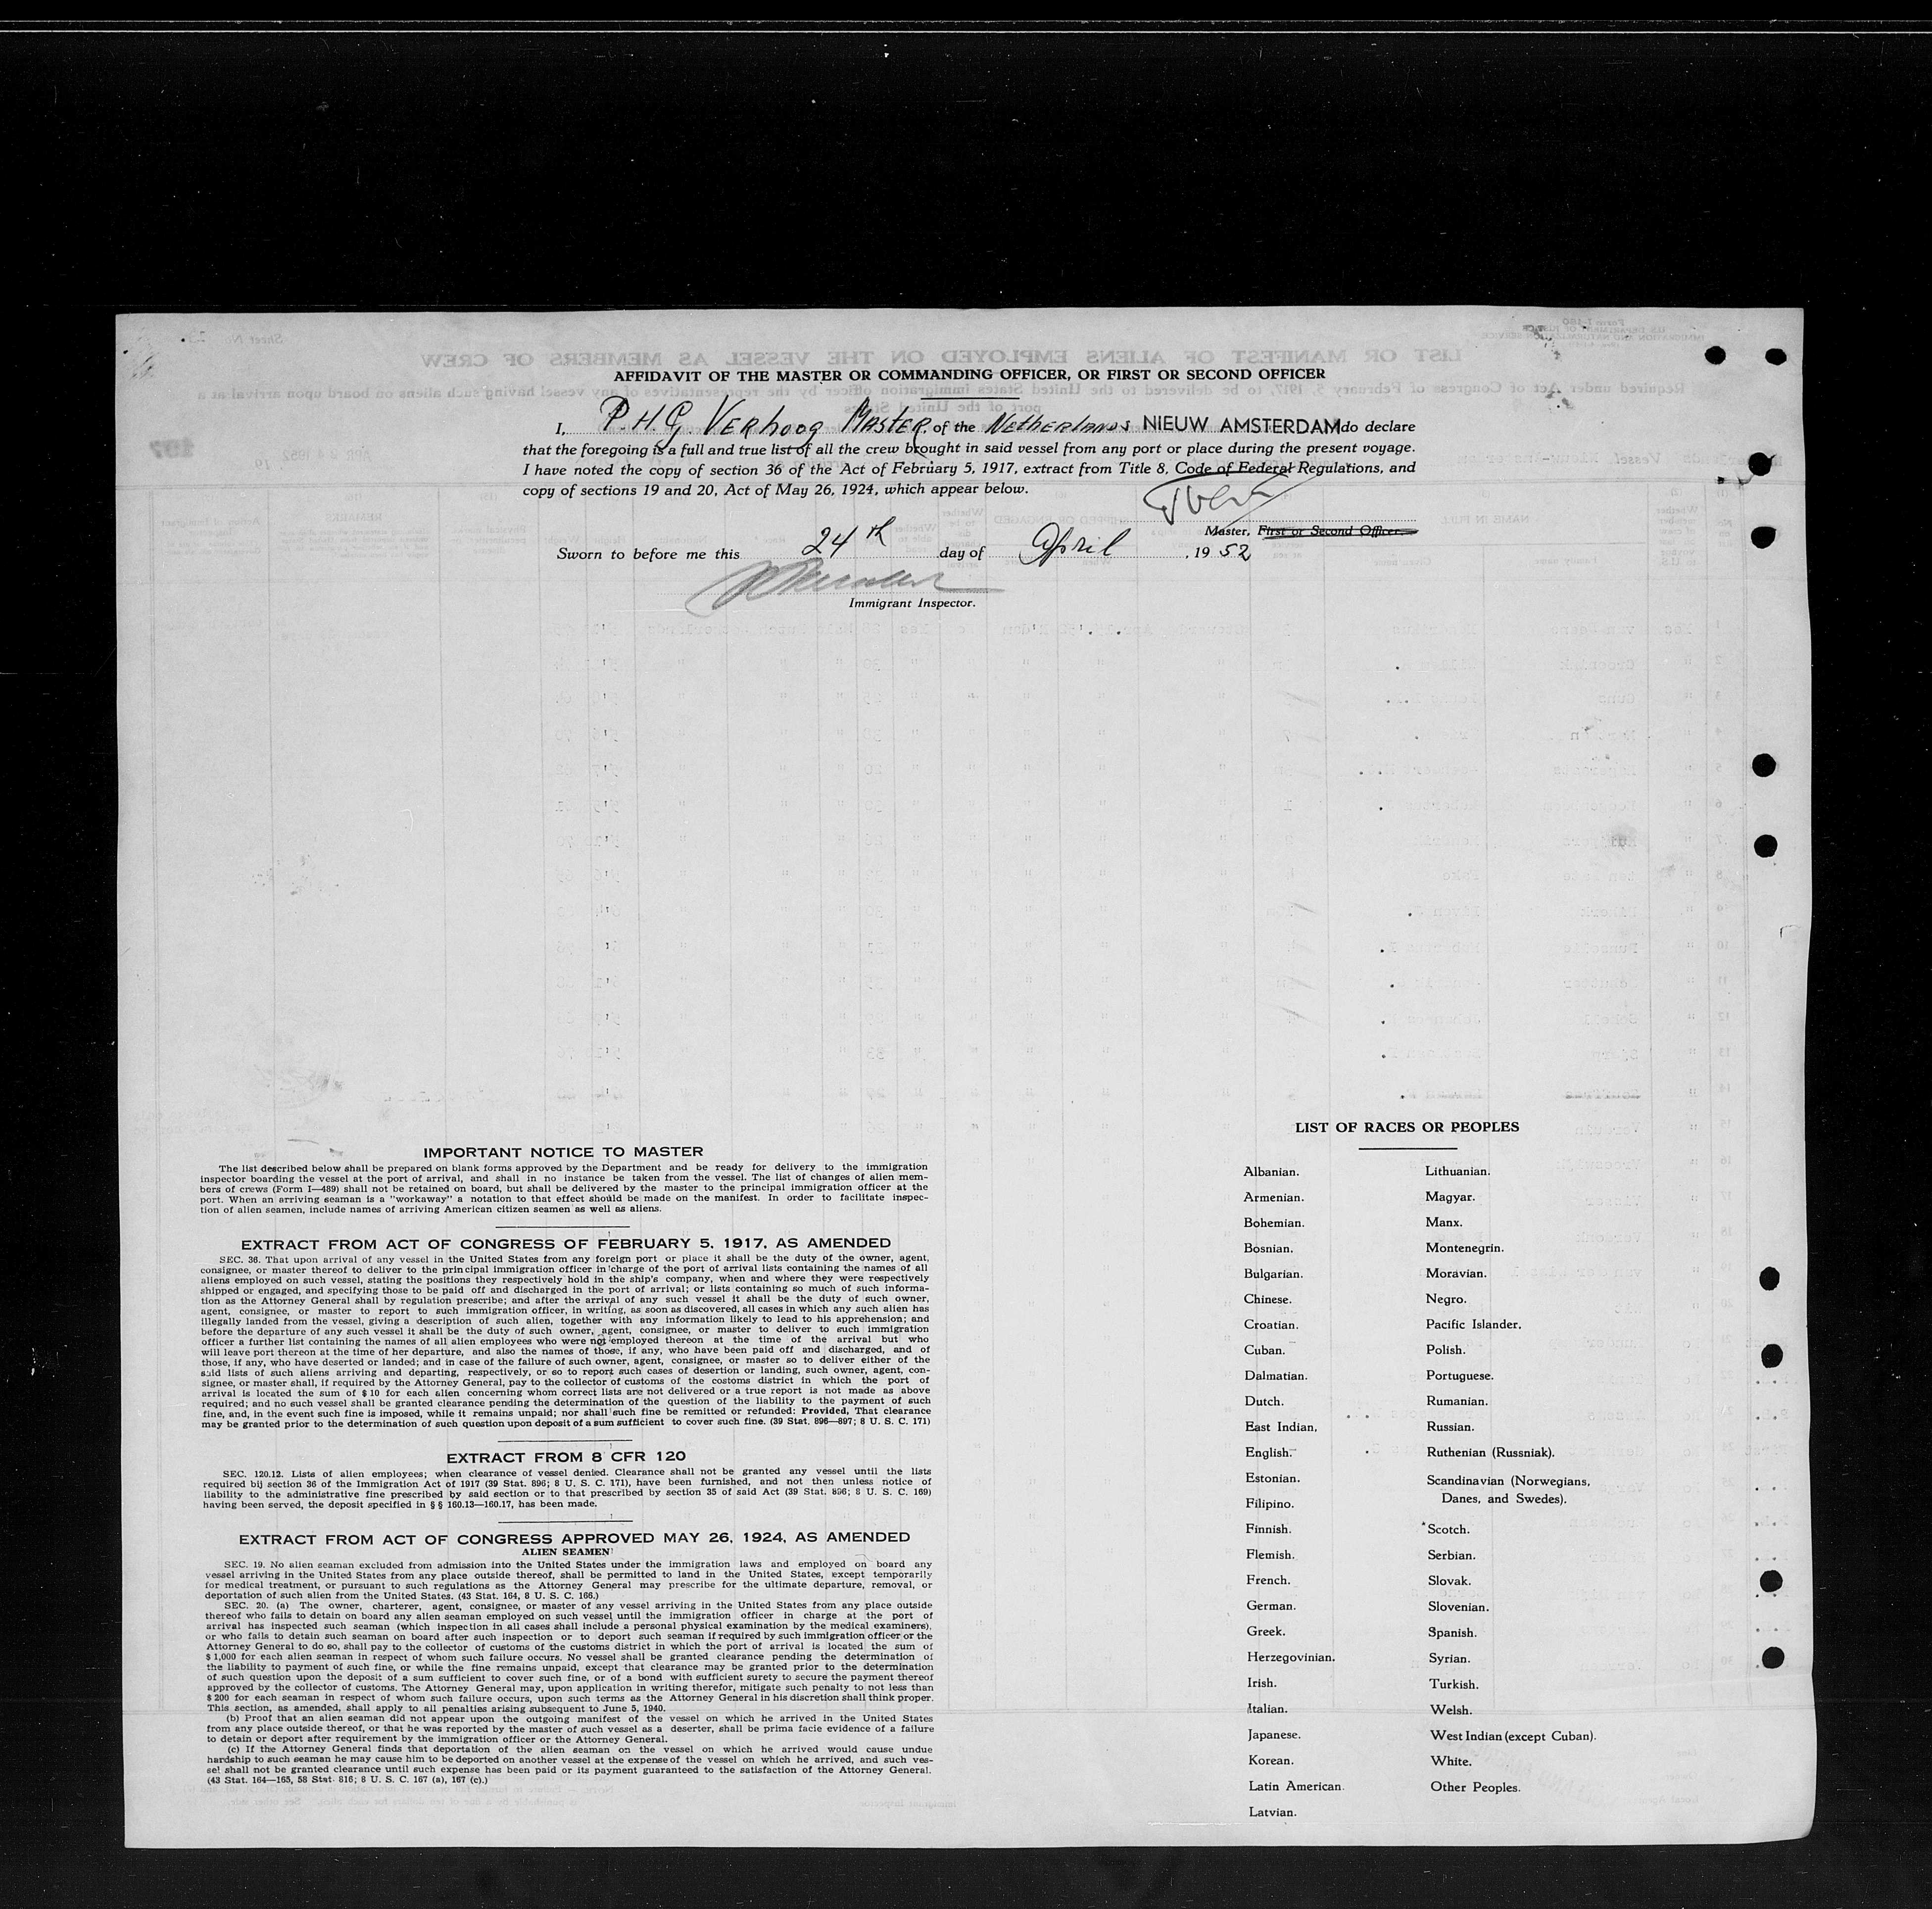 AFFIDAVIT OF THE MASTER OR COMMANDING OFFICER, OR FIRST OR SECOND OFFICER
I, P.H.G. Verhoog Master of the Netherlands NIEUW AMSTERDAM do declare
that the foregoing is a full and true list of all the crew brought in said vessel from any port or place during the present voyage.
I have noted the copy of section 36 of the Act of February 5, 1917, extract from Title 8, Code of Federal Regulations, and
copy of sections 19 and 20, Act of May 26, 1924, which appear below.
Master, First or Second Officer.
Sworn to before me this 24th day of April, 1952
Immigrant Inspector.
IMPORTANT NOTICE TO MASTER
The list described below shall be prepared on blank forms approved by the Department and be ready for delivery to the immigration
inspector boarding the vessel at the port of arrival, and shall in no instance be taken from the vessel. The list of changes of alien mem-
bers of crews (Form I—489) shall not be retained on board, but shall be delivered by the master to the principal immigration officer at the
port. When an arriving seaman is a "workaway" a notation to that effect should be made on the manifest. In order to facilitate inspec-
tion of alien seamen, include names of arriving American citizen seamen as well as aliens.
EXTRACT FROM ACT OF CONGRESS OF FEBRUARY 5, 1917, AS AMENDED
SEC. 36. That upon arrival of any vessel in the United States from any foreign port or place it shall be the duty of the owner, agent,
consignee, or master thereof to deliver to the principal immigration officer in charge of the port of arrival lists containing the names of all
aliens employed on such vessel, stating the positions they respectively hold in the ship's company, when and where they were respectively
shipped or engaged, and specifying those to be paid off and discharged in the port of arrival; or lists containing so much of such informa-
tion as the Attorney General shall by regulation prescribe; and after the arrival of any such vessel it shall be the duty of such owner,
agent, consignee, or master to report to such immigration officer, in writing, as soon as discovered, all cases in which any such alien has
illegally landed from the vessel, giving a description of such alien, together with any information likely to lead to his apprehension; and
before the departure of any such vessel it shall be the duty of such owner, agent, consignee, or master to deliver to such immigration
officer a further list containing the names of all alien employees who were not employed thereon at the time of the arrival but who
will leave port thereon at the time of her departure, and also the names of those, if any, who have been paid off and discharged, and of
those, if any, who have deserted or landed; and in case of the failure of such owner, agent, consignee, or master so to deliver either of the
said lists of such aliens arriving and departing, respectively, or so to report such cases of desertion or landing, such owner, agent, con-
signee, or master shall, if required by the Attorney General, pay to the collector of customs of the costoms district in which the port of
arrival is located the sum of $ 10 for each alien concerning whom correct lists are not delivered or a true report is not made as above
required; and no such vessel shall be granted clearance pending the determination of the question of the liability to the payment of such
fine, and, in the event such fine is imposed, while it remains unpaid; nor shall such fine be remitted or refunded: Provided, That clearance
may be granted prior to the determination of such question upon deposit of a sum sufficient to cover such fine. (39 Stat. 896—897; 8 U. S. C. 171)
EXTRACT FROM 8 CFR 120
SEC. 120.12. Lists of alien employees; when clearance of vessel denied. Clearance shall not be granted any vessel until the lists
required bij section 36 of the Immigration Act of 1917 (39 Stat. 896; 8 U. S. C. 171), have been furnished, and not then unless notice of
liability to the administrative fine prescribed by said section or to that prescribed by section 35 of said Act (39 Stat. 896; 8 U. S. C. 169)
having been served, the deposit specified in § § 160.13—160.17, has been made.
EXTRACT FROM ACT OF CONGRESS APPROVED MAY 26, 1924, AS AMENDED
ALIEN SEAMEN
SEC. 19. No alien seaman excluded from admission into the United States under the immigration laws and employed on board any
vessel arriving in the United States from any place outside thereof, shall be permitted to land in the United States, except temporarily
for medical treatment, or pursuant to such regulations as the Attorney General may prescribe for the ultimate departure, removal, or
deportation of such alien from the United States. (43 Stat. 164, 8 U. S. C. 166.)
SEC. 20. (a) The owner, charterer, agent, consignee, or master of any vessel arriving in the United States from any place outside
thereof who fails to detain on board any alien seaman employed on such vessel until the immigration officer in charge at the port of
arrival has inspected such seaman (which inspection in all cases shall include a personal physical examination by the medical examiners),
or who fails to detain such seaman on board after such inspection or to deport such seaman if required by such immigration officer or the
Attorney General to do so, shall pay to the collector of customs of the customs district in which the port of arrival is located the sum of
$ 1,000 for each alien seaman in respect of whom such failure occurs. No vessel shall be granted clearance pending the determination of
the liability to payment of such fine, or while the fine remains unpaid, except that clearance may be granted prior to the determination
of such question upon the deposit of a sum sufficient to cover such fine, or of a bond with sufficient surety to secure the payment thereof
approved by the collector of customs. The Attorney General may, upon application in writing therefor, mitigate such penalty to not less than
$ 200 for each seaman in respect of whom such failure occurs, upon such terms as the Attorney General in his discretion shall think proper.
This section, as amended, shall apply to all penalties arising subsequent to June 5, 1940.
(b) Proof that an alien seaman did not appear upon the outgoing manifest of the vessel on which he arrived in the United States
from any place outside thereof, or that he was reported by the master of such vessel as a deserter, shall be prima facie evidence of a failure
to detain or deport after requirement by the immigration officer or the Attorney General.
(c) If the Attorney General finds that deportation of the alien seaman on the vessel on which he arrived would cause undue
hardship to such seaman he may cause him to be deported on another vessel at the expense of the vessel on which he arrived, and such ves-
sel shall not be granted clearance until such expense has been paid or its payment guaranteed to the satisfaction of the Attorney General.
(43 Stat. 164—165, 58 Stat. 816; 8 U. S. C. 167 (a), 167 (c).)
LIST OF RACES OR PEOPLES
Albanian.
Armenian.
Bohemian.
Bosnian.
Bulgarian.
Chinese.
Croatian.
Cuban.
Dalmatian.
Dutch.
East Indian.
English.
Estonian.
Filipino.
Finnish.
Flemish.
French.
German.
Greek.
Herzegovinian.
Irish.
Italian.
Japanese.
Korean.
Latin American.
Latvian.
Lithuanian.
Magyar.
Manx.
Montenegrin.
Moravian.
Negro.
Pacific Islander.
Polish.
Portuguese.
Rumanian.
Russian.
Ruthenian (Russniak).
Scandinavian (Norwegians,
Danes, and Swedes).
Scotch.
Serbian.
Slovak.
Slovenian.
Spanish.
Syrian.
Turkish.
Welsh.
West Indian (except Cuban).
White.
Other Peoples.